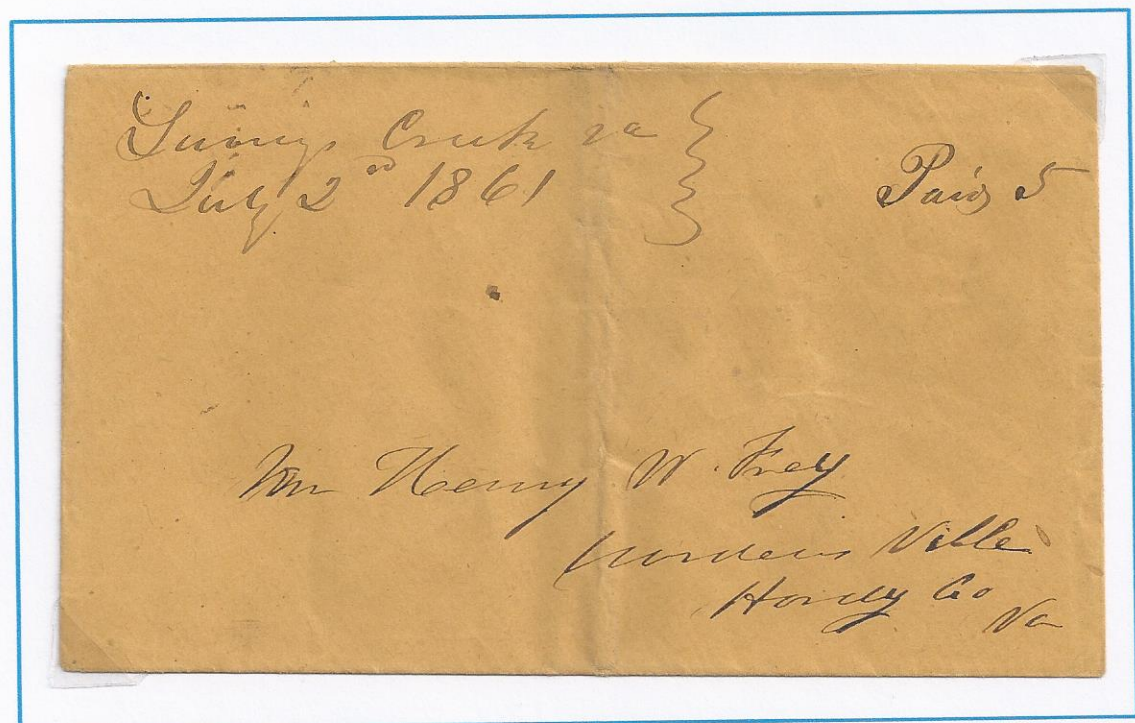 Luneys Creek va
July 2nd 1861
Paid 5
Mr Henry W. Frey
Wardens Ville
Hardy Co
Va